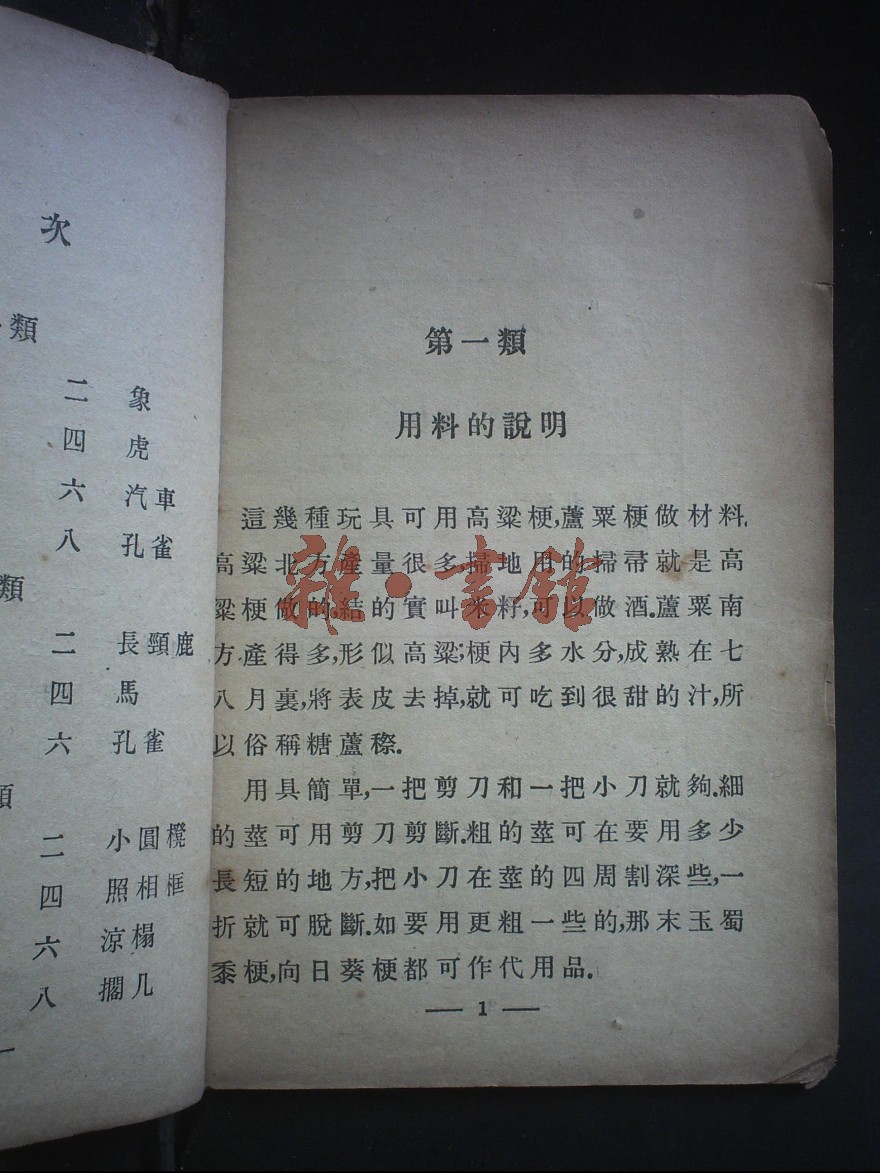 次
類
二 象
四 虎
六 汽車
八 孔雀
類
二 長頸鹿
四 馬
六 孔雀
類
二 小圓櫈
四 照相框
六 涼榻
八 擱几
第一類
用料的說明
這幾種玩具可用高粱梗,蘆粟梗做材料.
高粱北方產量很多,掃地用的掃帚就是高
粱梗做的,結的實叫米籽,可以做酒.蘆粟南
方產得多,形似高粱;梗內多水分,成熟在七
八月裏,將表皮去掉,就可吃到很甜的汁,所
以俗稱糖蘆穄.
用具簡單,一把剪刀和一把小刀就夠.細
的莖可用剪刀剪斷.粗的莖可在要用多少
長短的地方,把小刀在莖的四周割深些,一
折就可脫斷.如要用更粗一些的,那末玉蜀
黍梗,向日葵梗都可作代用品.
— 1 —
雜·書館